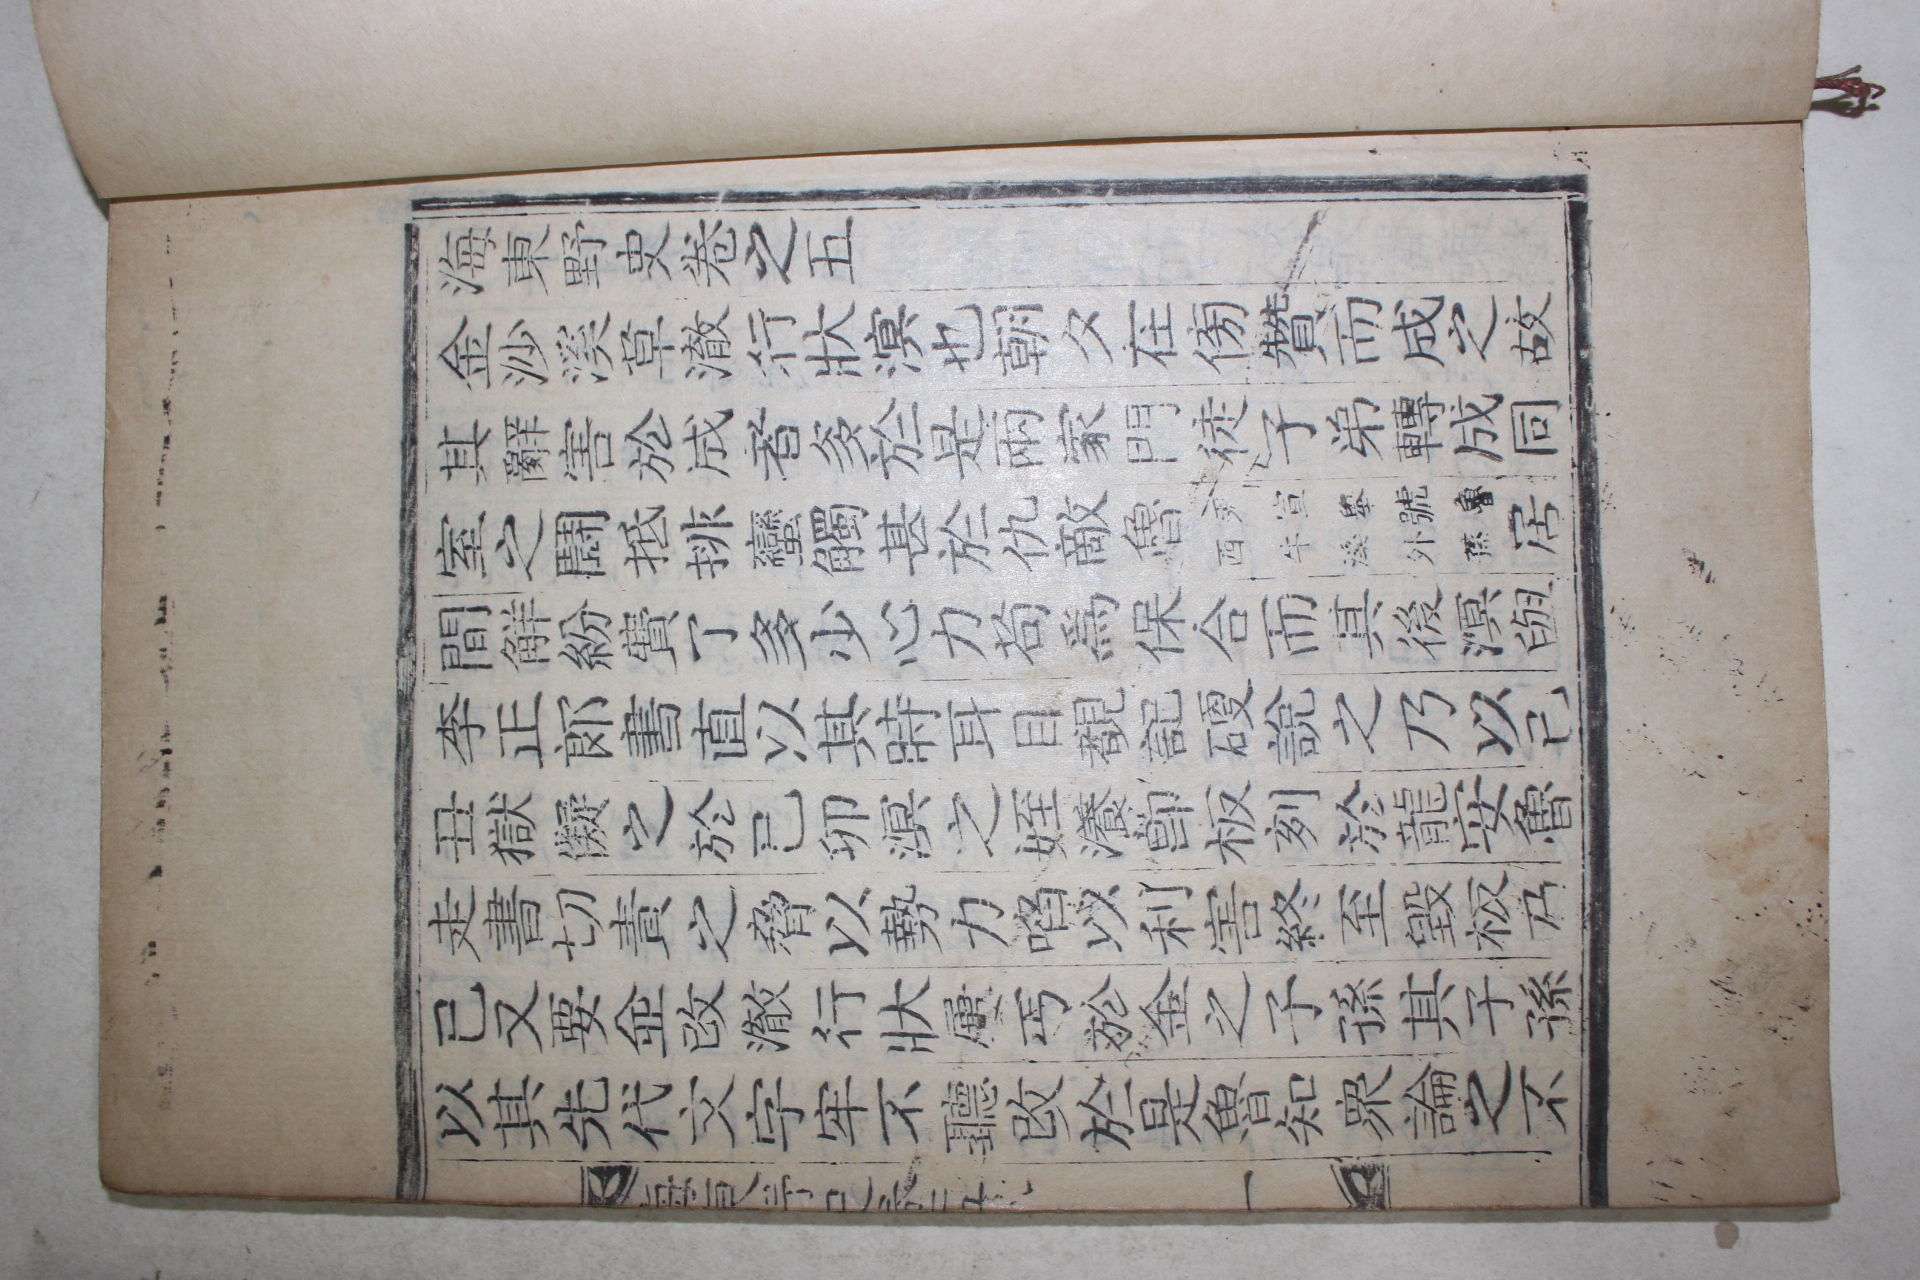 海東野史卷之五
金沙溪草澈行狀溟也朝夕在傍贊而成之故
其辭害於成者多於是兩家門徒子弟轉成同
室之鬪抵排蠻觸甚於仇敵魯尹宣擧號魯西牛溪外孫居
間觧紛費了多少心力苟爲保合而其後溟與
李正郎書直以其時耳目覩記硬說之乃以己
丑獄儗之於己卯溟之姪瀁卽板刻於龍安魯
走書切責之脅以勢力啗以利害終至毀板乃
已又要並改澈行狀屢丐於金之子孫其子孫
以其先代文字牢不聽改於是魯知衆論之不
一